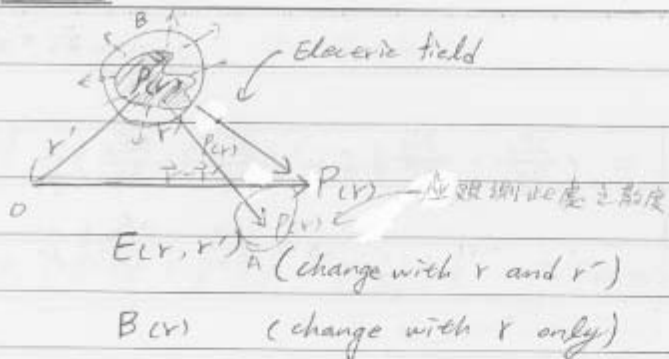 B
Eleceric field
P(r)
r'
r'
P(r)
r-r'
P(r)
应觀測此處之散度
O
P(r)
E(r, r') A (change with r and r')
B(r) (change with r only)